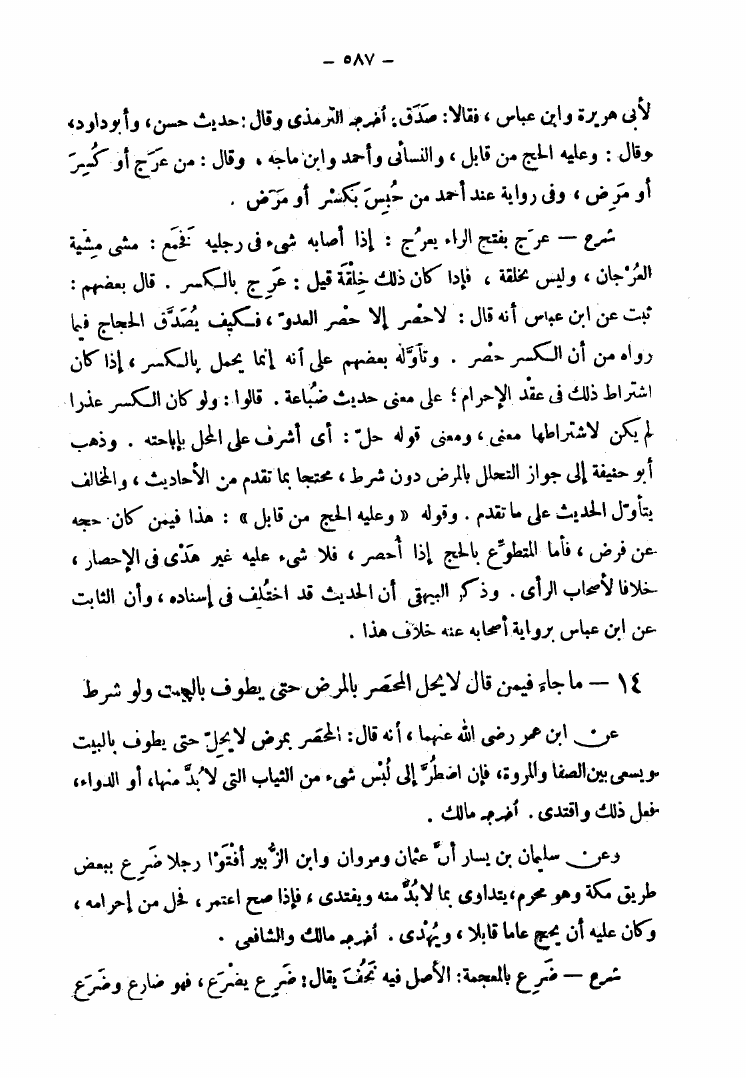 – ٥٨٧ –
لأبى هريرة وابن عباس ، فقالا: صَدَق. أخرجه الترمذى وقال: حديث حسن، وأبو داود،
وقال : وعليه الحج من قابل ، والنسائى وأحمد وابن ماجه . وقال : من عَرَج أو كُسِرَ
أو مَرِض ، وفى رواية عند أحمد من حُبِسَ بكسْر أو مَرَض .
شرح – عرَج بفتح الراء يعرُج : إذا أصابه شىء فى رجليه فخمَع : مشى مِشْية
العُرْجان ، وليس بخلقة ، فإذا كان ذلك خِلْقَة قيل : عَرِج بالكسر . قال بعضهم :
ثبت عن ابن عباس أنه قال : لاحصْر إلا حصْر العدوّ ، فكيف يُصَدَّق الحجاج فيما
رواه من أن الكسر حصْر . وتأوّله بعضهم على أنه إنما يحمل بالكسر ، إذا كان
اشتراط ذلك فى عقْد الإحرام؛ على معنى حديث ضُباعة . قالوا : ولو كان الكسر عذرا
لم يكن لاشتراطها معنى ، ومعنى قوله حلّ : أى أشرف على المحل بإباحته . وذهب
أبو حنيفة إلى جواز التحلل بالمرض دون شرط ، محتجا بما تقدم من الأحاديث ، والمخالف
يتأوّل الحديث على ما تقدم . وقوله « وعليه الحج من قابل » : هذا فيمن كان حجه
عن فرض ، فأما المتطوِّع بالحج إذا أُحصر ، فلا شىء عليه غير هَدْى فى الإحصار ،
خلافا لأصحاب الرأى . وذكر البيهقى أن الحديث قد اختُلِف فى إسناده ، وأن الثابت
عن ابن عباس برواية أصحابه عنه خلاف هذا .
١٤ – ما جاء فيمن قال لايحل المحصَر بالمرض حتى يطوف بالبيت ولو شرط
عن ابن عمر رضى الله عنهما ، أنه قال: المحصَر بمرض لايحِلّ حتى يطوف بالبيت
ويسعى بين الصفا والمروة، فإن اضطُرَّ إلى لُبْس شىء من الثياب التى لابُدَّ منها، أو الدواء،
فعل ذلك واقتدى . أخرجه مالك .
وعن سليمان بن يسار أنَّ عثمان ومروان وابن الزُّبير أفْتَوْا رجلا ضَرِع ببعض
طريق مكة وهو محرم، يتداوى بما لابُدَّ منه ويفتدى ، فإذا صح اعتمر ، فحل من إحرامه ،
وكان عليه أن يحج عاما قابلا ، ويُهْدى . أخرجه مالك والشافعى .
شرح – ضَرِع بالمعجمة : الأصل فيه نَحُفَ يقال: ضَرِع يضْرَع ، فهو ضارع وضَرَع